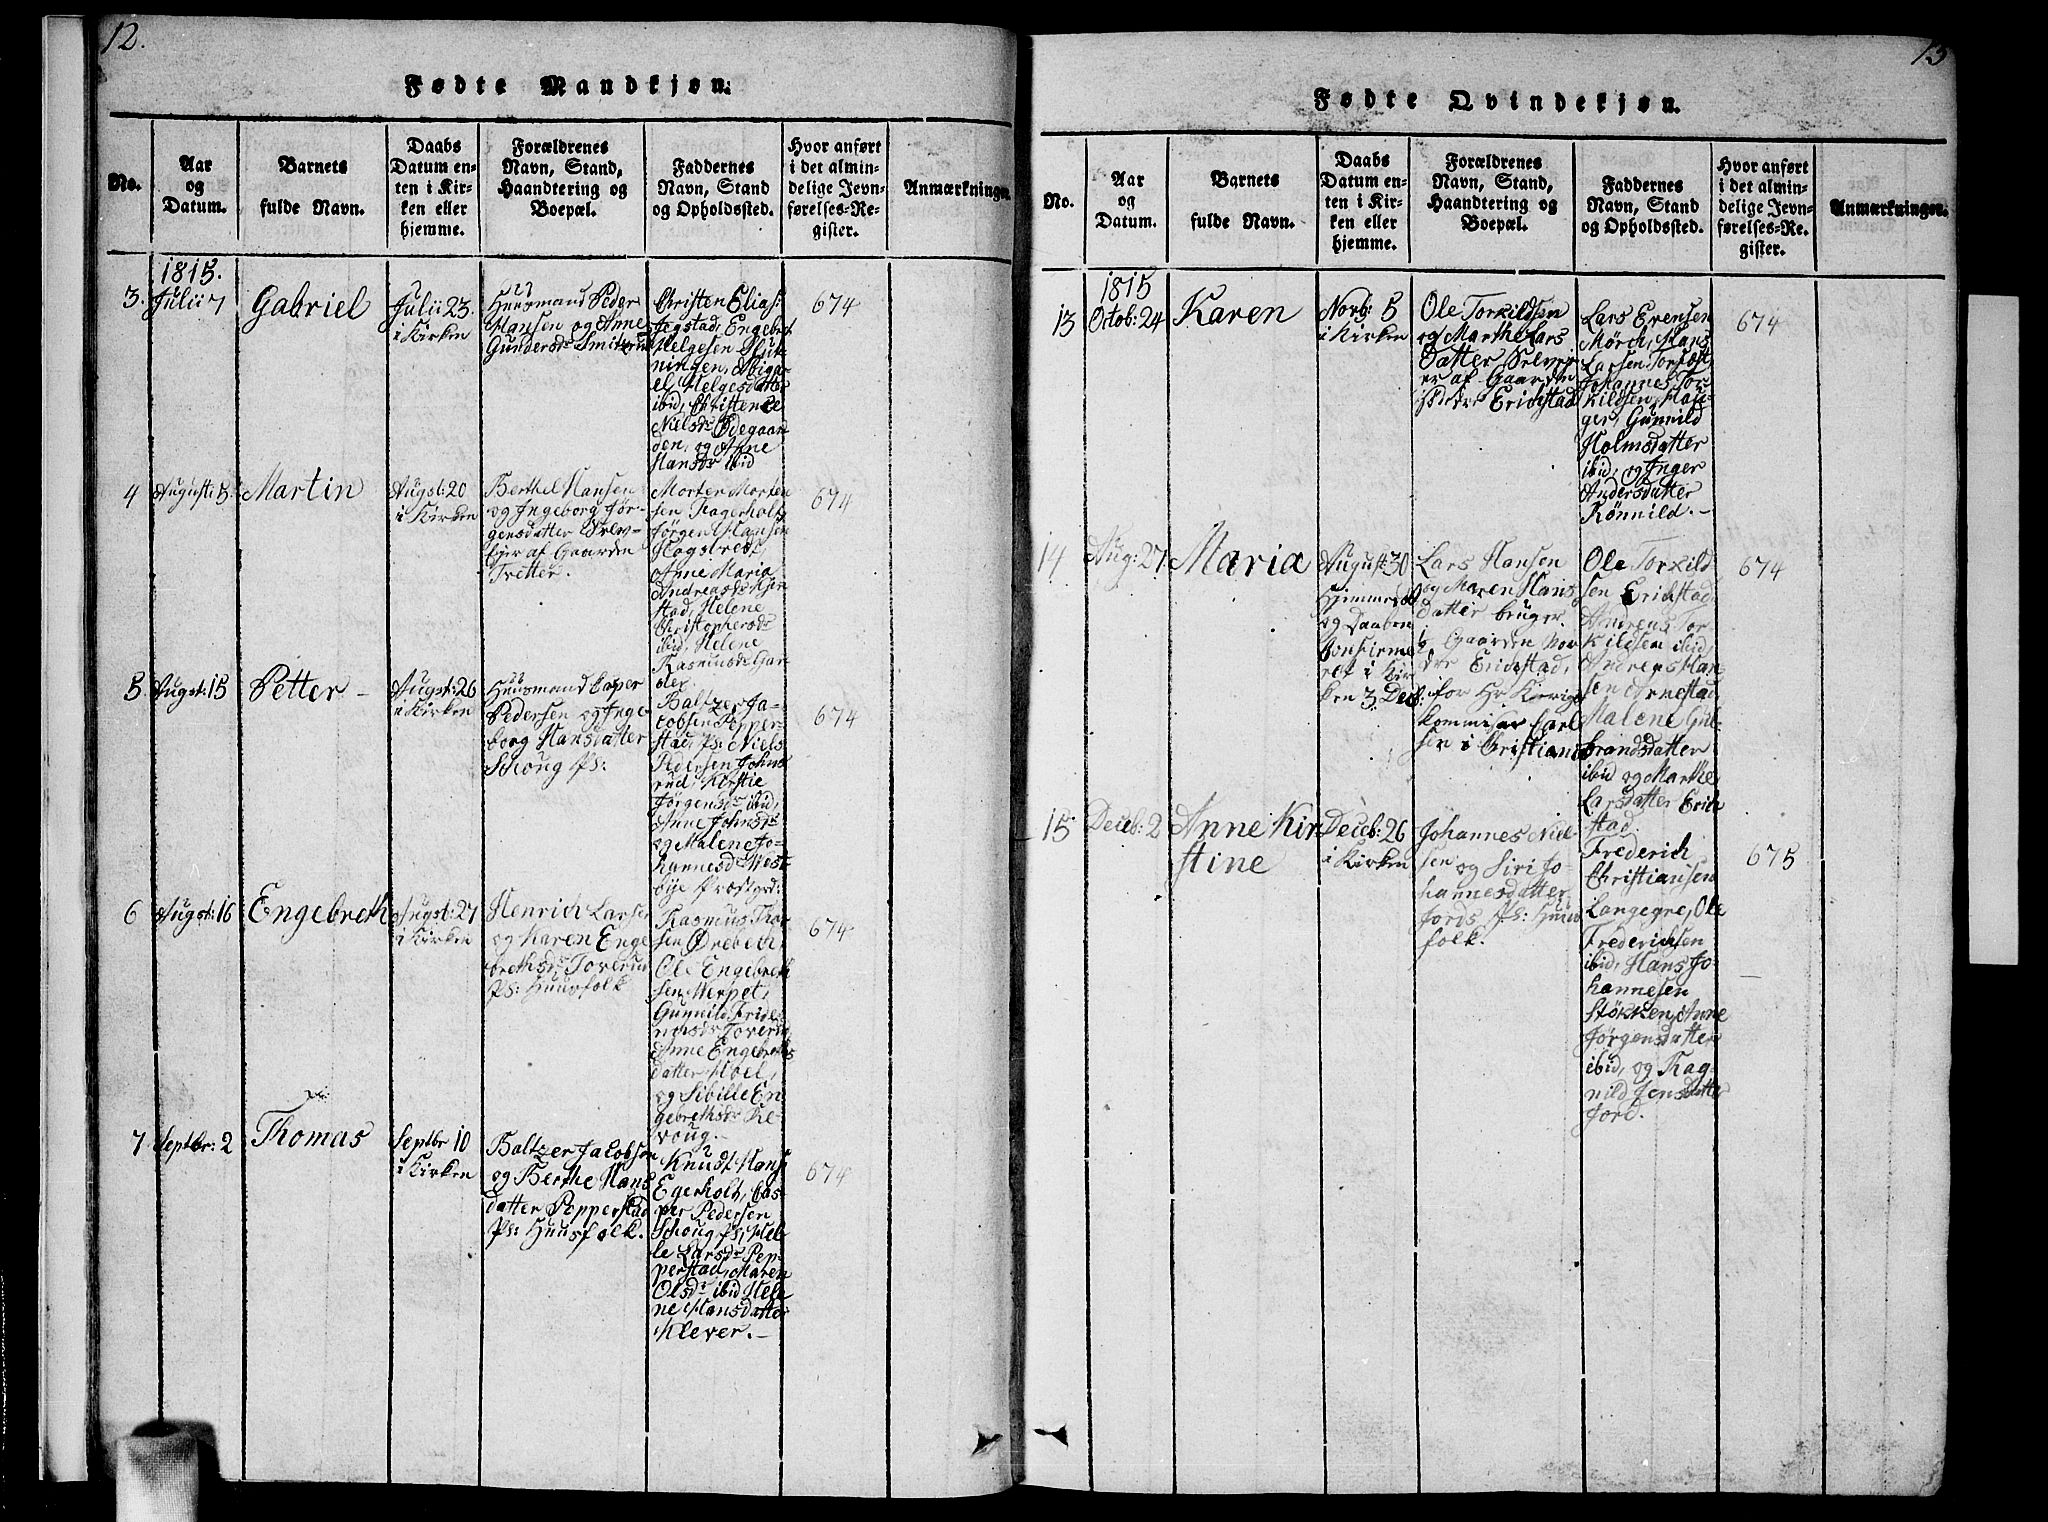 12.
Fødte Mandkjøn.
No.
Aar
og
Datum.
Barnets
fulde Navn.
Daabs
Datum en-
ten i Kir-
ken eller
hjemme.
Forældrenes
Navn, Stand,
Haandtering og
Boepæl.
Faddernes
Navn, Stand
og Opholdssted.
Hvor anført
i det almin-
delige Jevn-
førelses-Re-
gister.
Anmærkninger.
1815.
3.
Julii 7
Gabriel
Julii 23.
i Kirken
Huusmand Peder
Hansen og Anne
Gundersdr Smiterud
Christen Elias:
Jegstad, Engebret
Helgesen Slut-
ningen, Abiga-
el Helgesdatter
ibid, Christence
Nielsdr Ødegaar-
den, og Anne
Hansdr ibid
674
4
Augusti 5.
Martin
Augst: 20
i Kirken
Berthel Hansen
og Ingeborg Jør-
gensdatter Selv-
Ejer af Gaarden
Tretter.
Morten Morten
sen Fagerholt
Jørgen Hansen
Hagstred,
Anne Maria
Andreasdr Kjer-
stad, Helene
Christophersdr
ibid, Helene
Rasmusdr Gar-
der.
674
5
Augst: 15
Petter -
Augst: 26
i Kirken
Huusmand Casper
Pedersen og Inge-
borg Hansdatter
Schoug Ps:
Baltzer Ja-
cobsen Pepper-
stad, Ps: Niels
Pedersen Johns
rud, Kirstie
Jørgensdr ibid,
Anne Johnsdr
og Malene Jo-
hannesdr West
bye Præstgrd:
674
6
Augst: 16
Engebreth
Augst: 27
i Kirken
Henrich Larsen
og Karen Enge
brethsdr Toverud
Ps: Huusfolk
Rasmus Thor
sen Ørebech
Ole Engebreth
sen Werpet,
Gunnild Fride
richsdr Toverud,
Anne Engebreths
datter Hoel,
og Sibille En-
gebrethsdr Ke
voug.-
674
7
Septbr: 2
Thomas
Septbr 10
i Kirken
Baltzer Jacobsen
og Berthe Hans
datter Pepperstad
Ps: Huusfolk.
Knud Hans:
Egerholt, Cas-
per Pedersen
Schoug Ps, Hel-
le Larsdr Pep-
perstad, Maren
Olsdr ibid Hele
ne Hansdatter
Klever.-
674
13
Fødte Qvindekjøn.
No.
Aar
og
Datum.
Barnets
fulde Navn.
Daabs
Datum en-
ten i Kir-
ken eller
hjemme.
Forældrenes
Navn, Stand,
Haandtering og
Boepæl.
Faddernes
Navn, Stand
og Opholdssted.
Hvor anført
i det almin-
delige Jevn-
førelses-Re-
gister.
Anmærkninger.
1815
13
Octob: 24
Karen
Novb: 5
i Kirken
Ole Torkildsen
og Marthe Lars
datter Selvej
er af Gaarden
Nedre Erichstad
Lars Evensen
Mørch, Hans
Larsen Torfæst
Johannes Tor
kildsen, Hau-
ger, Gunnild
Holmsdatter
ibid, og Inger
Andersdatter
Rønnild.-
674
14
Aug: 27
Maria
August 30
Hjemmedøbt
og Daaben
Confirme
ret i Kir
ken 3 Decb:
Lars Hansen
og Maren Hans
datter bruger
½ Gaarden Nor
dre Erichstad,
for Hr Krrigs
kommisær Carl
sen i Christiania
Ole Torkild
sen Erichstad
Andreas Tor
kildsen ibid,
Andreas Han
sen Ørnestad
Malene Gul-
brandsdatter
ibid og Marthe
Larsdatter Erich
stad.
674
15
Deceb: 2
Anne Kir
stine
Deceb: 26
i Kirken
Johannes Niel-
sen og Siri Jo-
hannesdatter
Jords Ps: Huus
folk.
Frederich
Christiansen
Langegre, Ole
Frederichsen
ibid, Hans Jo-
hannesen
Støkken, Anne
Jørgensdatter
ibid, og Rag-
nild Jensdatter
Jord.
675